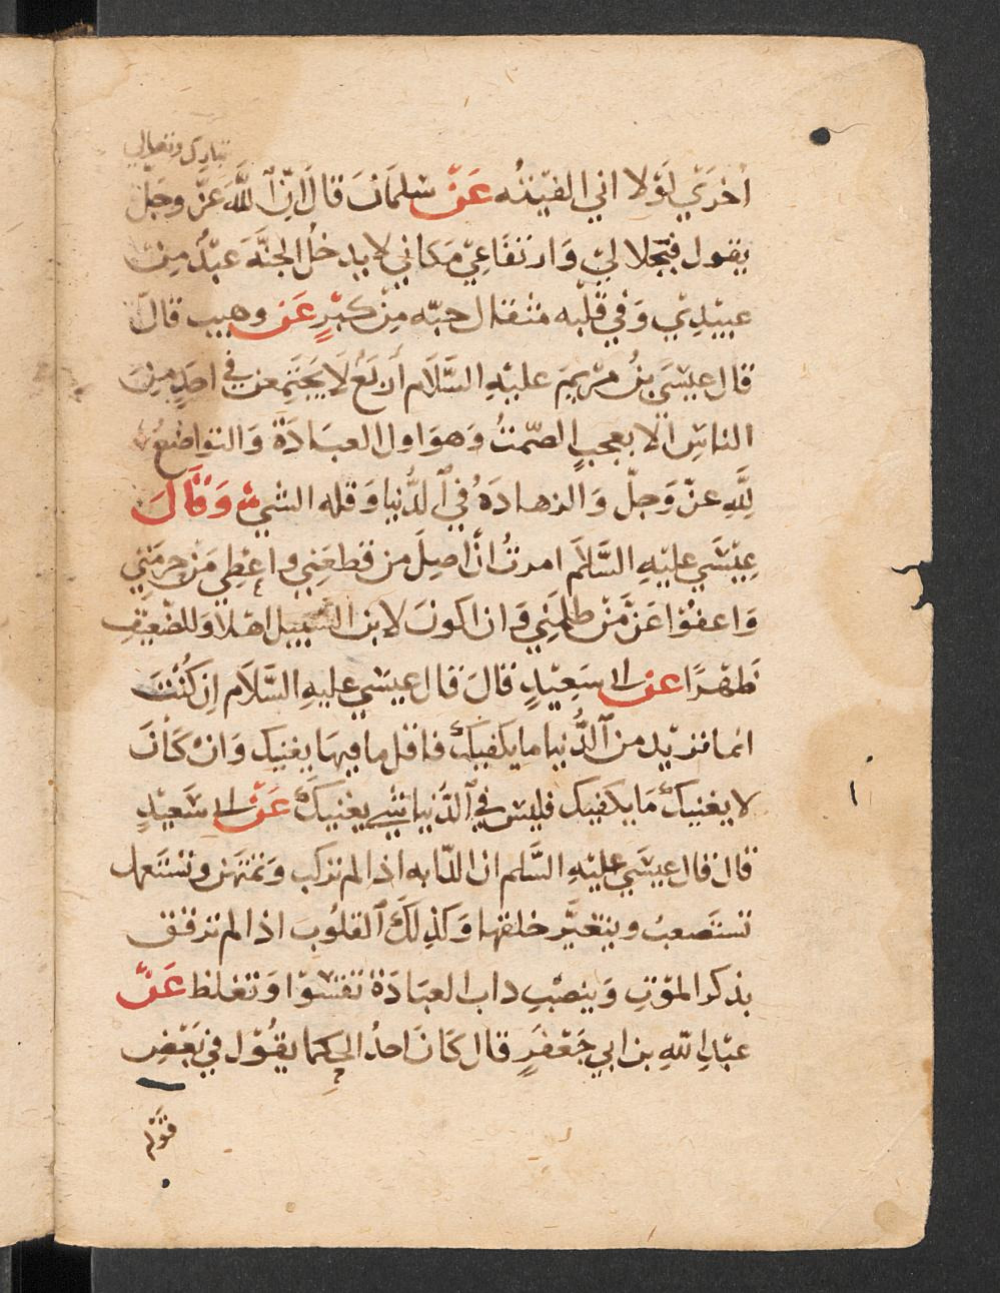 تبارك وتعالى
اخرَي لَوْلا اني الفيتنُه عَنْ سُلمَانَ قَالَ انّ اللَّهَ عَزَّ وجَلّ
يقول فبجلالي وَارتفَاعِي مَكاني لا يدخلُ الجنَّةَ عَبْدٌ مِن
عبيْدِي وَفي قلْبه مثقال حبّه مِنْ كبْرٍ عَن وهيب قالَ
قال عِيسَي بنُ مرْيَمَ عليْهِ السَّلَام أرْبَعٌ لَا يَجتَمِعن في احَدٍ مِنَ
الناسِ الا بعجبٍ الصّمتُ وَهوَ اول العبَادَة وَالتواضعُ
لِلَّهِ عزّ وَجلّ وَالزهادَةُ في الدُّنيا وَقله الشيء وَقَالَ
عِيْسَي عليْهِ السَّلَام امرتُ انْ اصِلَ من قطعَنِي واعْطِي مَنْ حرمَنِي
وَاعفوْا عَنْ مَنْ ظلمَنِي وَان اكونَ لابن السَّبيل اهْلًا وَللضّعيْفِ
ظهْرًا عن ابي سَعيْدٍ قالَ قال عيسَي عليهِ السَّلَام اِن كُنْتَ
انما تريْد من الدُّنيا ما يكفيك فاقل ما فيهَا يغنيك وَان كَانَ
لا يغنيكَ مَا يكفيك فليسَ في الدُّنيا شي يغنيكَ عَنْ ابي سَعيْدٍ
قال قال عِيسَي عليْهِ السَّلم ان الدّابه اذا لم تركب وَتمْتهَن وتسْتَعمل
تستَصعبُ ويتغيَّر خلقها وَكذلكَ القلُوبَ اذا لم ترقق
بذكر الموْتِ وَينصْبِ داب العبَادَة تقسُوْا وَتغلظ عَنْ
عبْدِ اللّهِ بن ابي جَعْفَرٍ قال كَانَ احدُ الحكما يقُوْل في بَعْضِ
قوْله